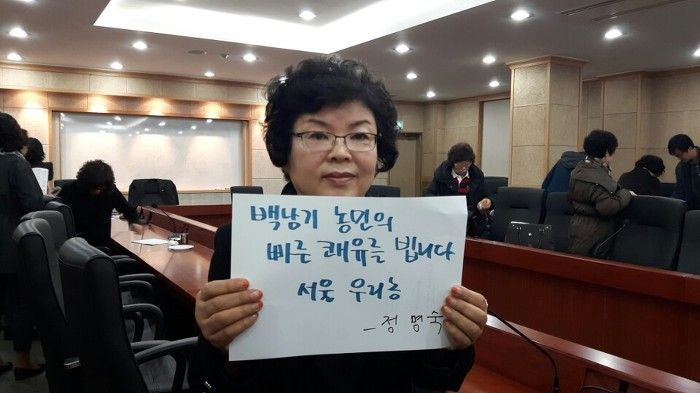 백남기 농민의
빠른 쾌유를 빕니다
서울 우리농
- 정 명 숙